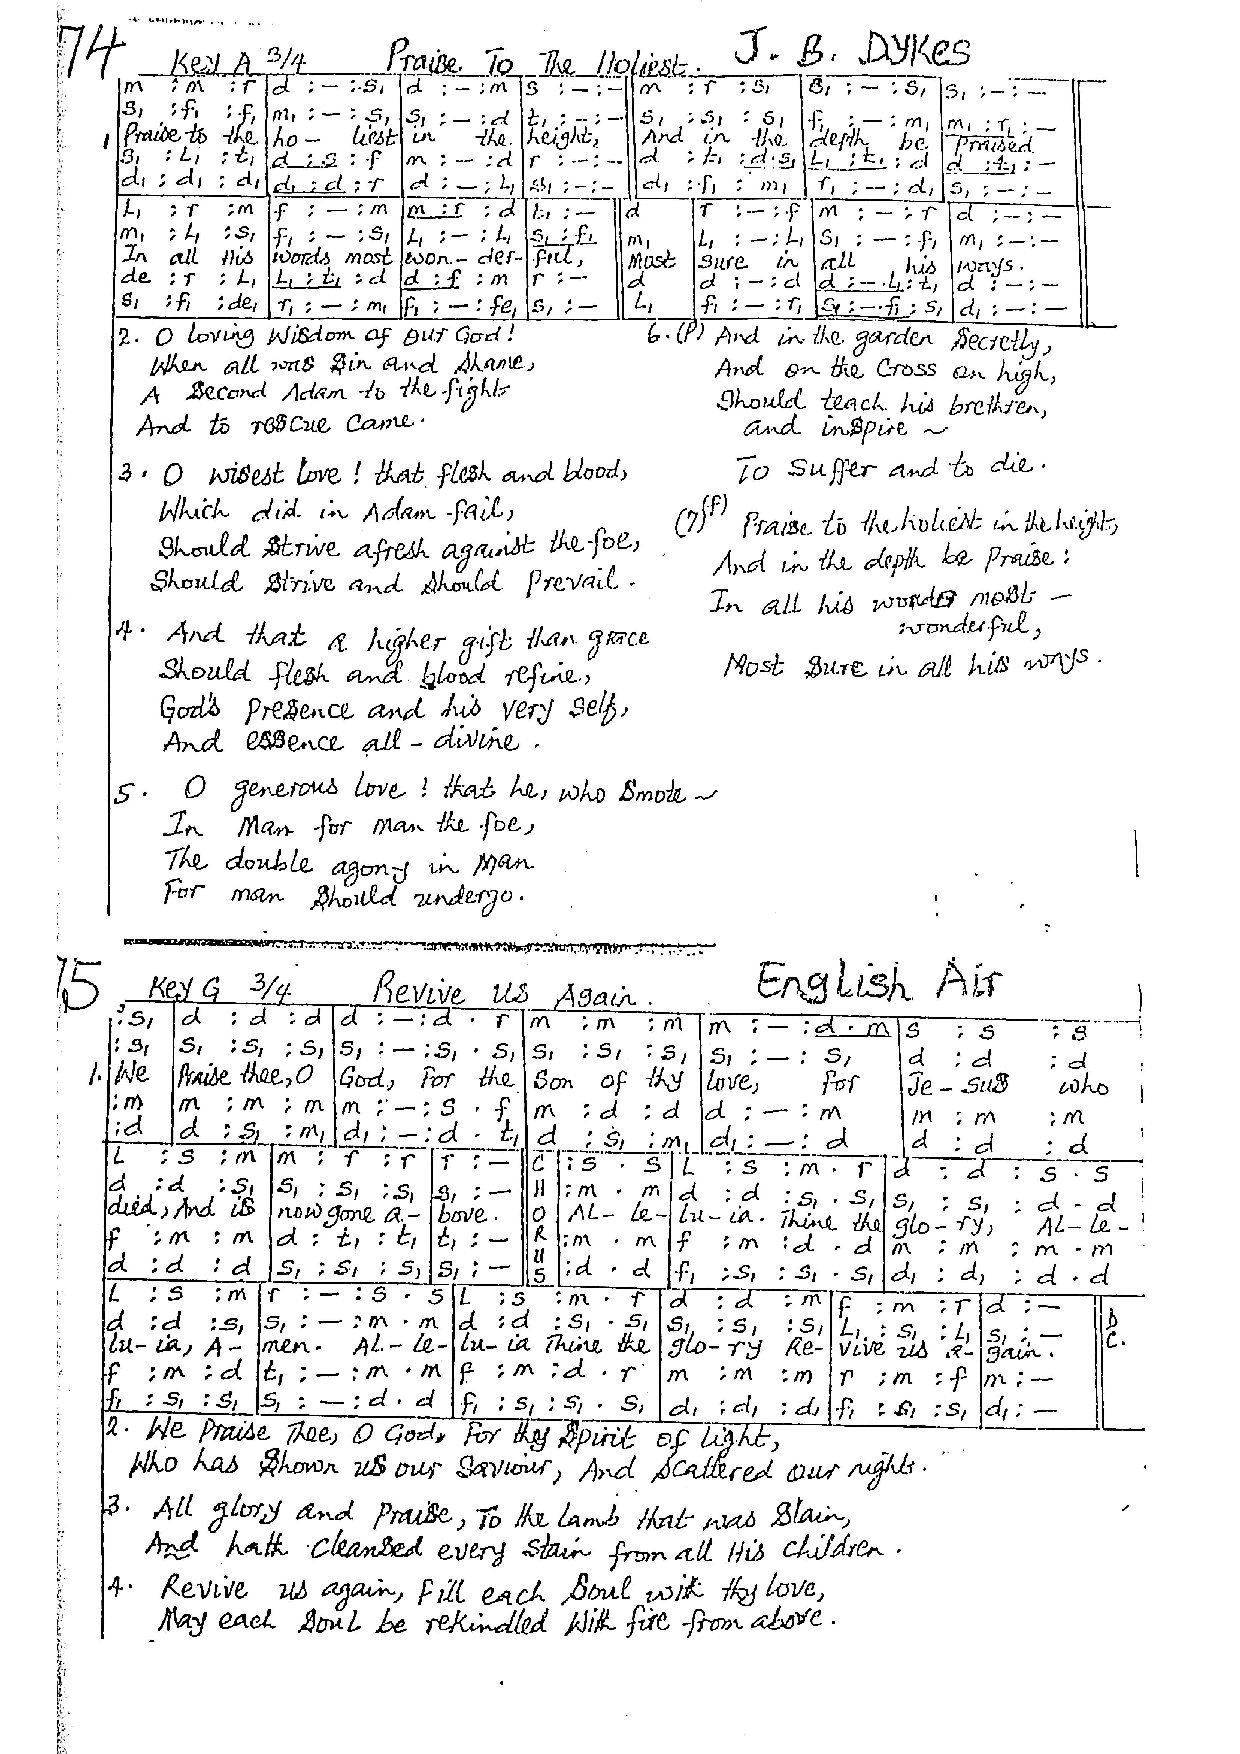 74 Key A 3/4 Praise To The Holiest. J. B. DYKES
m : m : r | d : – : s₁ | d : – : m | s : – : – | m : r : s₁ | s₁ : – : s₁ | s₁ : – : –
s₁ : f₁ : f₁ | m₁ : – : s₁ | s₁ : – : d | t₁ : – : – | s₁ : s₁ : s₁ | f₁ : – : m₁ | m₁ : r₁ : –
1 Praise to the ho – liest in the height, And in the depth be Praised
s₁ : L₁ : t₁ | d : s : f | m : – : d | r : – : – | d : t₁ : d . s₁ | L₁ : t₁ : d | d : t₁ : –
d₁ : d₁ : d₁ | d₁ : d : r | d : – : L₁ | s₁ : – : – | d₁ : f₁ : m₁ | r₁ : – : d₁ | s₁ : – : –
L₁ : r : m | f : – : m | m : r : d | t₁ : – | d | r : – : f | m : – : r | d : – : –
m₁ : L₁ : s₁ | f₁ : – : s₁ | L₁ : – : L₁ | s₁ : f₁ | m₁ | L₁ : – : L₁ | s₁ : – : f₁ | m₁ : – : –
In all His words most won – der – ful, Most Sure in all his ways.
de : r : L₁ | L₁ : t₁ : d | d : f : m | r : – | d | d : – : d | d : – . L₁ : t₁ | d : – : –
s₁ : f₁ : de₁ | r₁ : – : m₁ | f₁ : – : fe₁ | s₁ : – | L₁ | f₁ : – : r₁ | s₁ : – . f₁ : s₁ | d₁ : – : –
2. O loving Wisdom of our God!
When all was Sin and Shame,
A Second Adam to the fight
And to rescue Came.
3. O wisest love! that flesh and blood,
Which did in Adam fail,
Should Strive afresh against the foe,
Should Strive and Should Prevail.
4. And that a higher gift than grace
Should flesh and blood refine,
God's Presence and his very Self,
And essence all – divine.
5. O generous love! that he, who Smote ~
In Man for man the foe,
The double agony in Man
For man Should undergo.
6. (P) And in the garden Secretly,
And on the Cross on high,
Should teach his brethren,
and inspire ~
To Suffer and to die.
(7) (f) Praise to the holiest in the height,
And in the depth be Praise:
In all his words most –
wonderful,
Most Sure in all his ways.
75 Key G 3/4 Revive us Again. English Air
: s₁ | d : d : d | d : – : d . r | m : m : m | m : – : d . m | s : s : s
: s₁ | s₁ : s₁ : s₁ | s₁ : – : s₁ . s₁ | s₁ : s₁ : s₁ | s₁ : – : s₁ | d : d : d
1. We Praise thee, O God, For the Son of thy love, For Je – sus who
: m | m : m : m | m : – : s . f | m : d : d | d : – : m | m : m : m
: d | d : s₁ : m₁ | d₁ : – : d . t₁ | d : s₁ : m₁ | d₁ : – : d | d : d : d
L : s : m | m : r : r | r : – | CHORUS | : s . s | L : s : m . r | d : d : s . s
d : d : s₁ | s₁ : s₁ : s₁ | s₁ : – | : m . m | d : d : s₁ . s₁ | s₁ : s₁ : d . d
died, And is now gone a – bove. AL – le – lu – ia. Thine the glo – ry, AL – le –
f : m : m | d : t₁ : t₁ | t₁ : – | : m . m | f : m : d . d | m : m : m . m
d : d : d | s₁ : s₁ : s₁ | s₁ : – | : d . d | f₁ : s₁ : s₁ . s₁ | d₁ : d₁ : d . d
L : s : m | r : – : s . s | L : s : m . r | d : d : m | f : m : r | d : – | D.C.
d : d : s₁ | s₁ : – : m . m | d : d : s₁ . s₁ | s₁ : s₁ : s₁ | L₁ : s₁ : L₁ | s₁ : –
lu – ia, A – men. AL – le – lu – ia Thine the glo – ry Re – vive us a – gain.
f : m : d | t₁ : – : m . m | f : m : d . r | m : m : m | r : m : f | m : –
f₁ : s₁ : s₁ | s₁ : – : d . d | f₁ : s₁ : s₁ . s₁ | d₁ : d₁ : d₁ | f₁ : s₁ : s₁ | d₁ : –
2. We Praise Thee, O God, For thy Spirit of light,
Who has Shown us our Saviour, And Scattered our night.
3. All glory and Praise, To the Lamb that was Slain,
And hath Cleansed every Stain from all His Children.
4. Revive us again, Fill each Soul with thy love,
May each Soul be rekindled With fire from above.